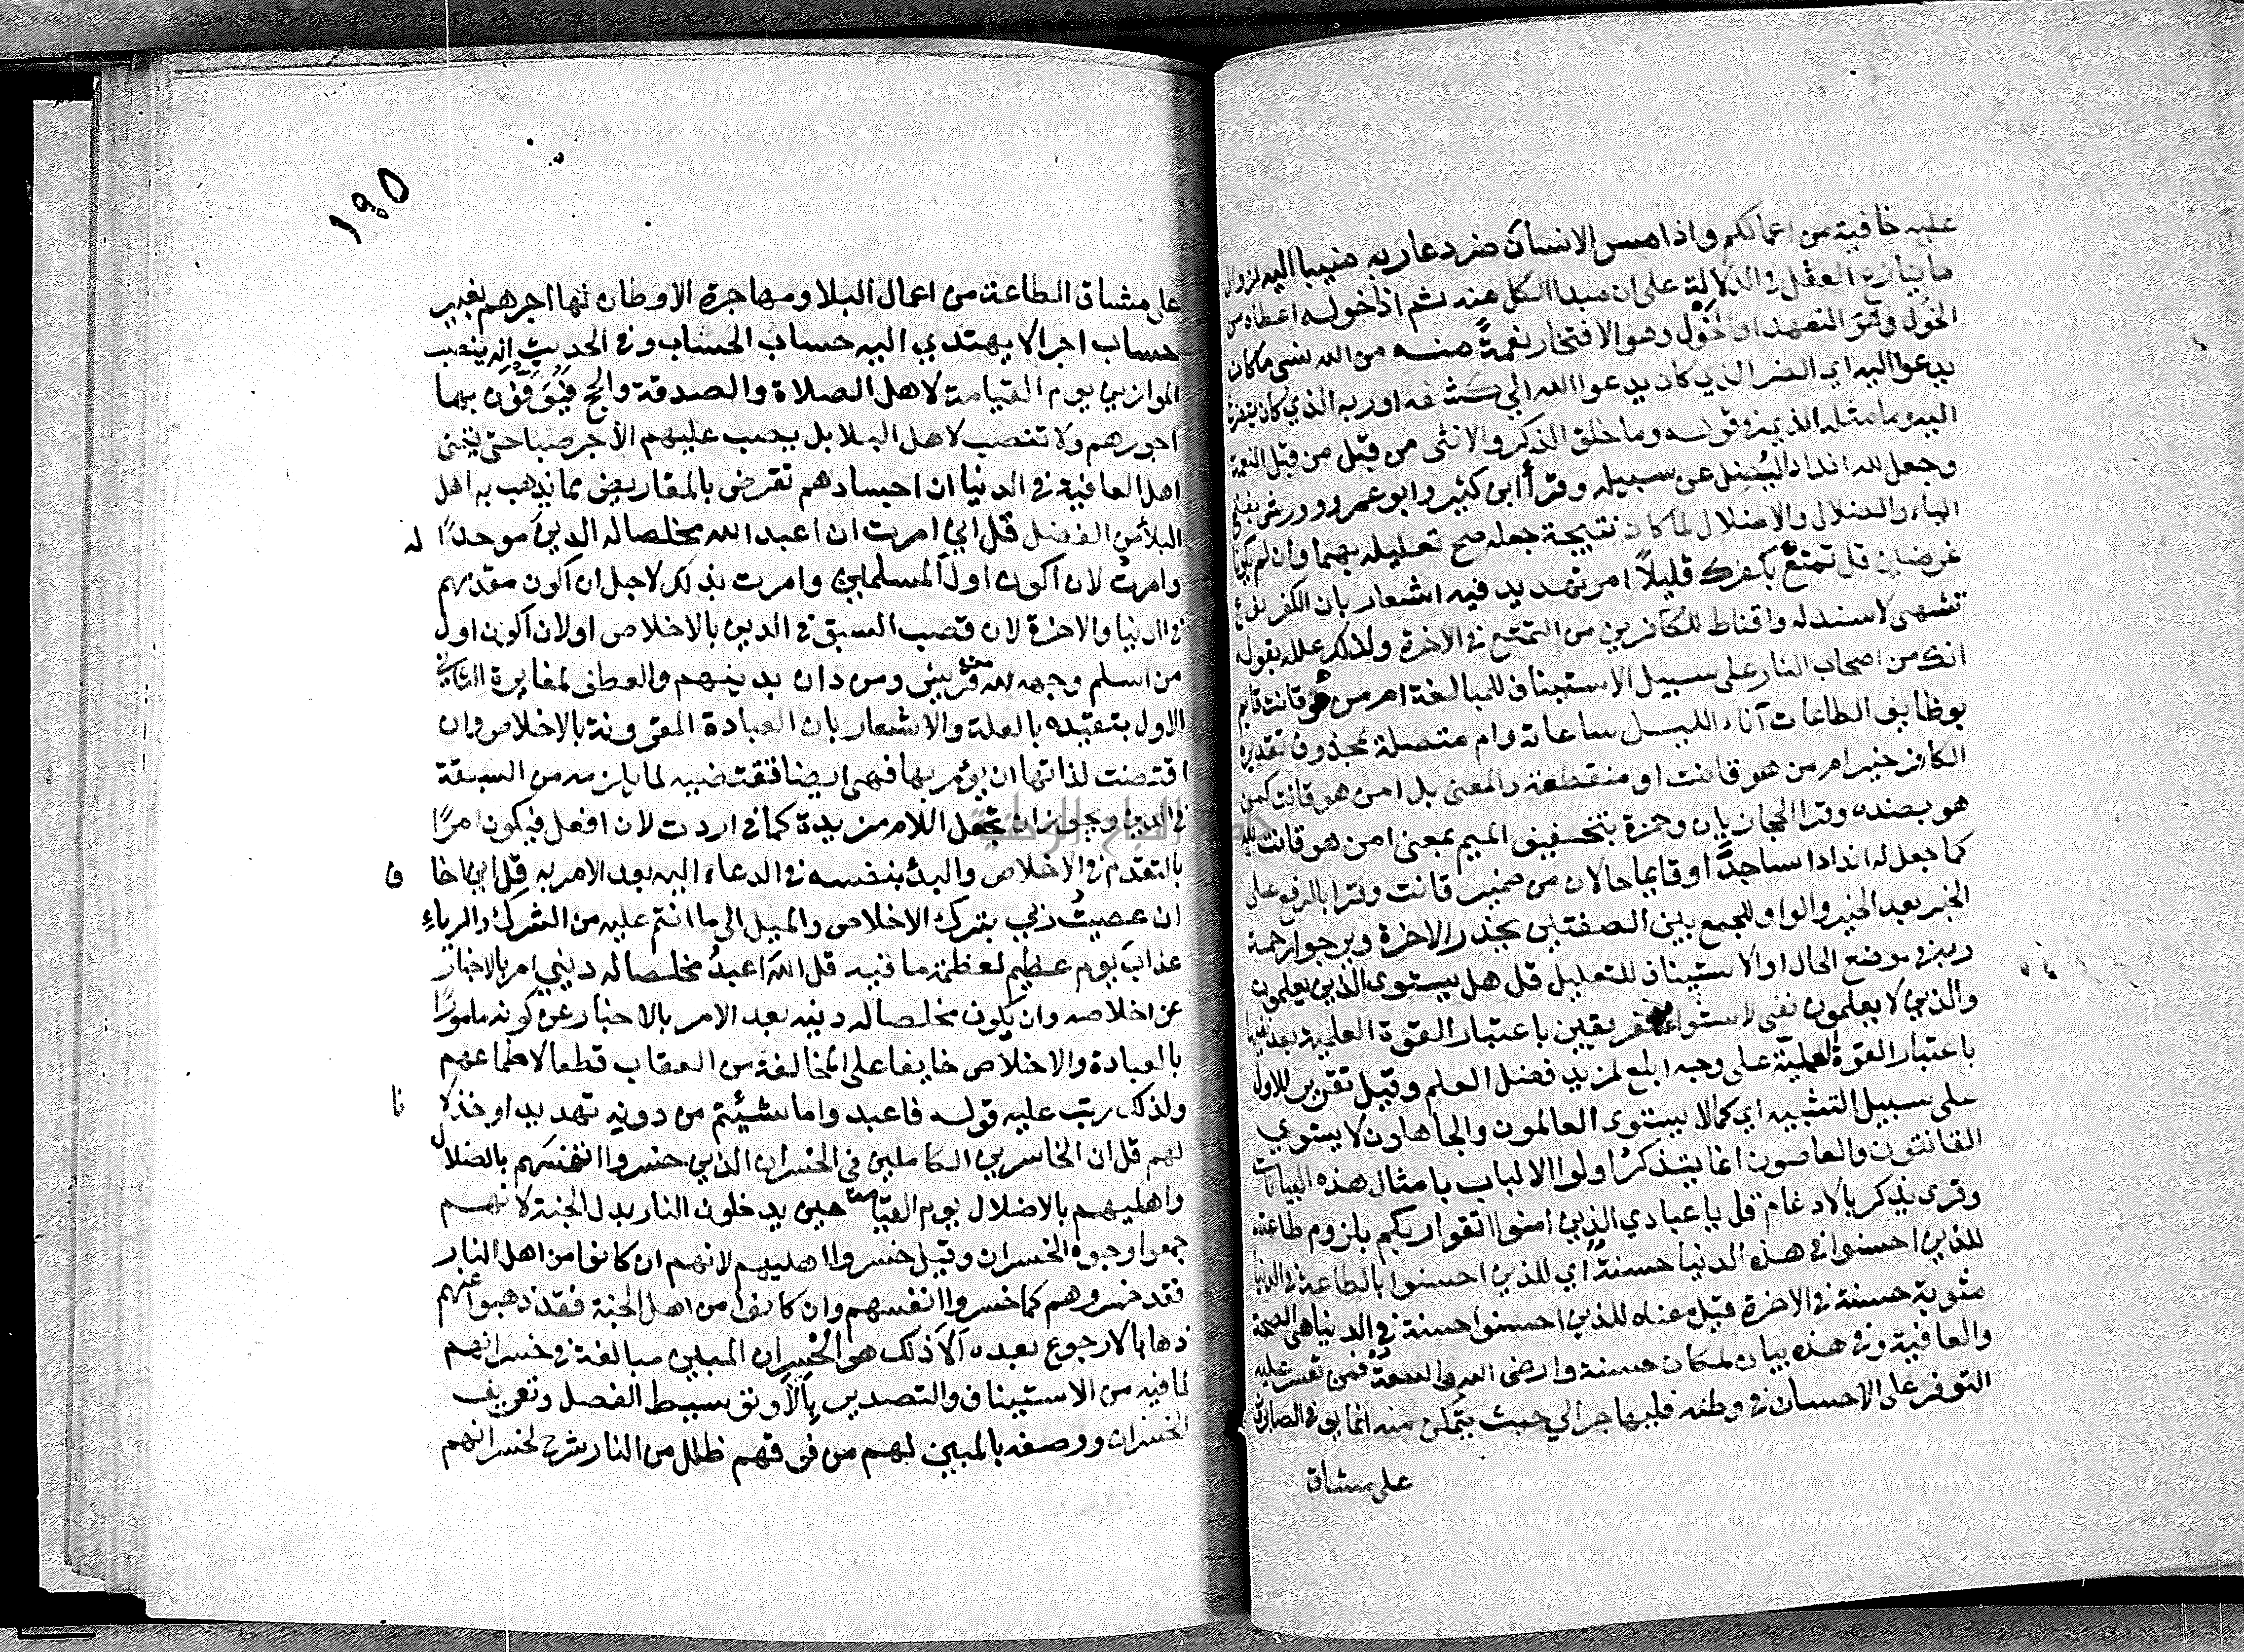 عليه خافية من اعمالكم واذا مس الانسان ضر دعا ربه منيبا اليه لزوال
ما ينازع العقل في الدلالة على ان مبدا الكل منه ثم اذا خوله اعطاه من
الخول وهو التعهد او الخول وهو الافتخار نعمة منه من الله نسى ما كان
يدعوا اليه اي الضر الذي كان يدعوا الله الي كشفه او ربه الذي كان يتضرع
اليه وما مثله الذي في قوله وما خلق الذكر والانثى من قبل من قبل النعمة
وجعل لله اندادا ليضل عن سبيله وقرأ ابن كثير وابو عمرو وورش بفتح
الياء والضلال والاضلال لما كان نتيجة جعله صح تعليله بهما وان لم يكونا
غرضين قل تمتع بكفرك قليلاً امر تهديد فيه اشعار بان الكفر نوع
تشهى لا سند له واقناط للكافرين من التمتع في الاخرة ولذلك علله بقوله
انك من اصحاب النار على سبيل الاستيناف للمبالغة امن هو قانت قايم
بوظايف الطاعات آناء الليل ساعاته وام متصلة بمحذوف تقديره
الكافر خير ام من هو قانت او منقطعة والمعنى بل امن هو قانت كمن
هو بضده وقرا الحجازيان وحمزة بتخفيف الميم بمعنى امن هو قانت لله
كما جعل له اندادا ساجدًا او قايما حالان من ضمير قانت وقرا بالرفع على
الخبر بعد الخبر والواو للجمع بين الصفتين يحذر الاخرة ويرجوا رحمة
ربه في موضع الحال او الاستيناف للتعليل قل هل يستوى الذين يعلمون
والذين لا يعلمون نفى لاستواء الفريقين باعتبار القوة العلمية بعد نفيها
باعتبار القوة العملية على وجه ابلغ لمزيد فضل العلم وقيل تقرير للاول
على سبيل التشبيه اي كما لا يستوى العالمون والجاهلون لا يستوي
القانتون والعاصون انما يتذكر اولوا الالباب بامثال هذه البيانات
وقرى يذكر بالادغام قل يا عبادي الذين امنوا اتقوا ربكم بلزوم طاعته
للذين احسنوا في هذه الدنيا حسنة اي للذين احسنوا بالطاعة في الدنيا
مثوبة حسنة في الاخرة قيل معناه للذين احسنوا حسنة في الدنيا هي الصحة
والعافية وفي هذه بيان لمكان حسنة وارض الله واسعة فمن تعسر عليه
التوفر على الاحسان في وطنه فليهاجر الي حيث يتمكن منه انما يوفى الصابرون
على مشاق
١٩٥
على مشاق الطاعة من اعمال البلا ومهاجرة الاوطان لها اجرهم بغير
حساب اجرا لا يهتدي اليه حساب الحساب وفي الحديث انه ينصب
الموازين يوم القيامة لاهل الصلاة والصدقة والحج فيوفون بها
اجورهم ولا تنصب لاهل البلا بل يصب عليهم الاجر صبا حتى يتمنى
اهل العافية في الدنيا ان اجسادهم تقرض بالمقاريض مما يذهب به اهل
البلا من الفضل قل اني امرت ان اعبد الله مخلصا له الدين موحدًا له
وامرت لان اكون اول المسلمين وامرت بذلك لاجل ان اكون مقدمهم
في الدنيا والاخرة لان قصب السبق في الدين بالاخلاص او لان اكون اول
من اسلم وجهه لله من قريش ومن دان بدينهم والعطف لمغايرة الثاني
الاول بتقيده بالعلة والاشعار بان العبادة المقرونة بالاخلاص وان
اقتضت لذاتها ان يؤمر بها فهى ايضا تقتضيه لما يلزمه من السبقة
في الدين ويجوز ان تجعل اللام مزيدة كما في اردت لان افعل فيكون امرًا
بالتقدم في الاخلاص والبدئ بنفسه في الدعاء اليه بعد الامر به قل اني اخاف
ان عصيتُ ربي بترك الاخلاص والميل الى ما انتم عليه من الشرك والرياء
عذاب يوم عظيم لعظمة ما فيه قل الله اعبد مخلصا له ديني امر بالاخبار
عن اخلاصه وان يكون مخلصا له دينه بعد الامر بالاخبار عن كونه مامورًا
بالعبادة والاخلاص خايفا على المخالفة من العقاب قطعا لاطماعهم
ولذلك رتب عليه قوله فاعبدوا ما شئتم من دونه تهديدا وخذلانا
لهم قل ان الخاسرين الكاملين في الخسران الذين خسروا انفسهم بالضلال
واهليهم بالاضلال يوم القيامة حين يدخلون النار بدل الجنة لانهم
جمعوا وجوه الخسران وقيل خسروا اهليهم لانهم ان كانوا من اهل النار
فقد خسروهم كما خسروا انفسهم وان كانوا من اهل الجنة فقد ذهبوا عنهم
ذهابا لا رجوع بعده الا ذلك هو الخسران المبين مبالغة في خسرانهم
لما فيه من الاستيناف والتصدير بالا وتوسيط الفصل وتعريف
الخسران ووصفه بالمبين لهم من فوقهم ظلل من النار شرح لخسرانهم